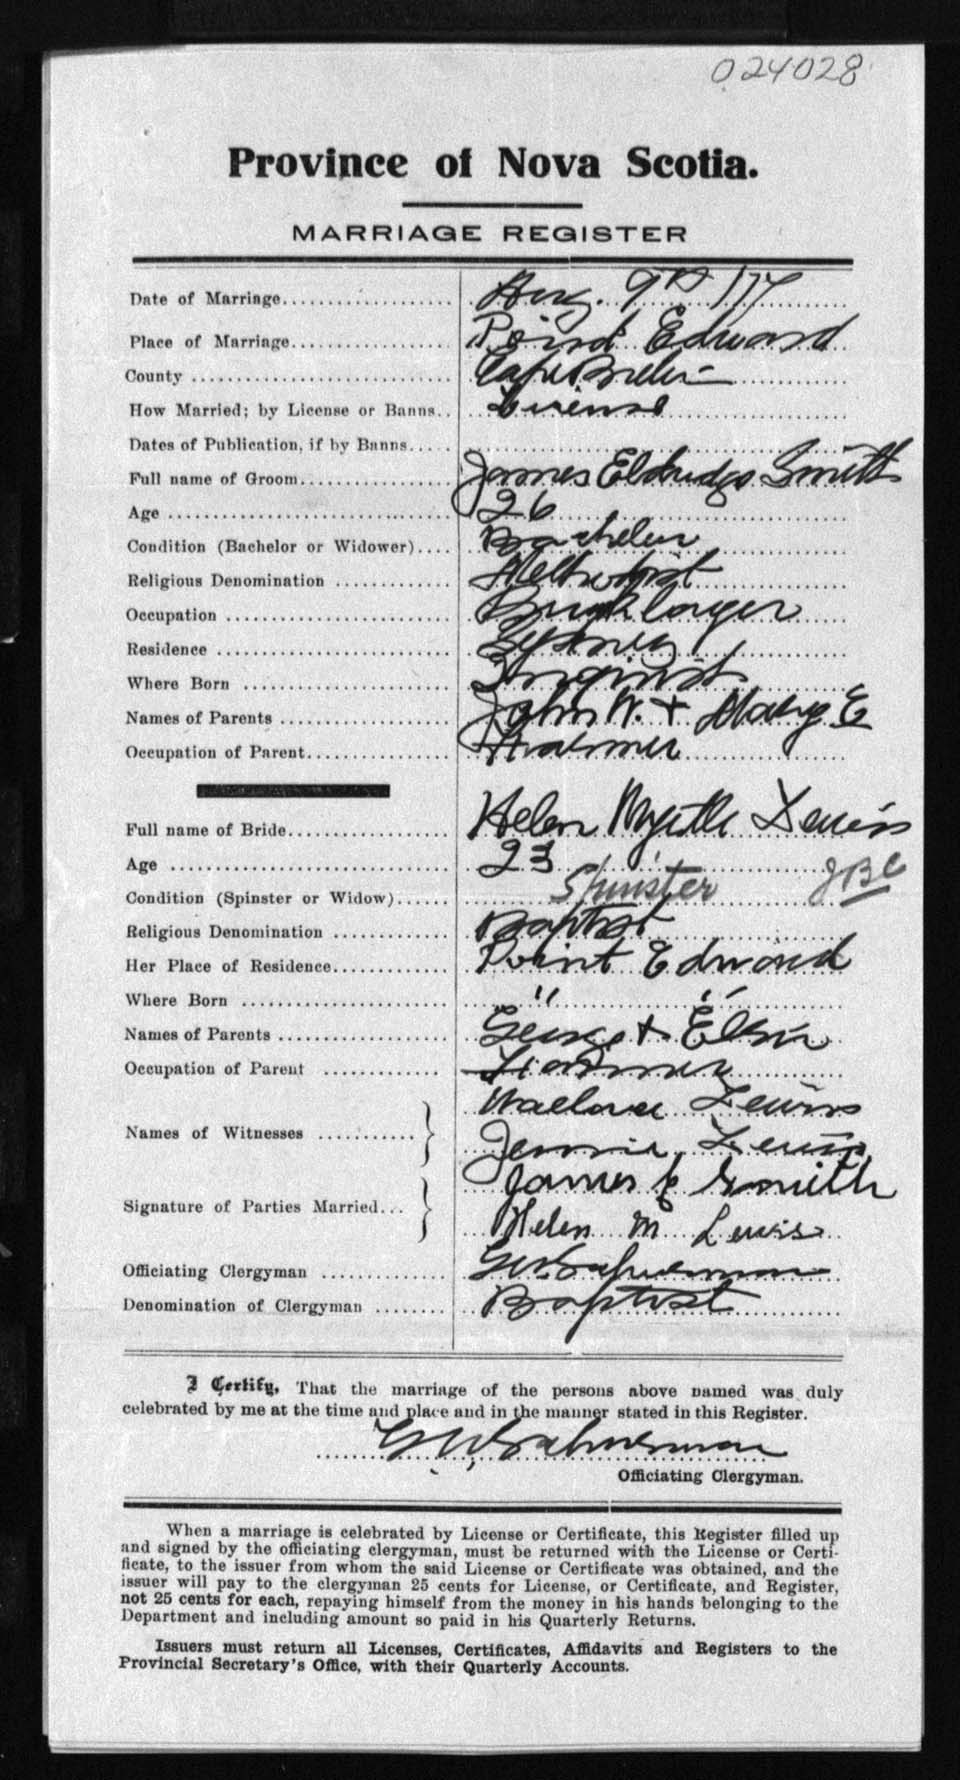 024028
Province of Nova Scotia.
MARRIAGE REGISTER
Date of Marriage Aug. 9th
Place of Marriage Point Edward
County Cape Breton
How Married; by License or Banns License
Dates of Publication, if by Banns
Full name of Groom James Eldridge Smith
Age 26
Condition (Bachelor or Widower) Bachelor
Religious Denomination Methodist
Occupation Bricklayer
Residence Sydney
Where Born
Names of Parents John W. + Mary E
Occupation of Parent Farmer
Full name of Bride Helen Myrtle Lewis
Age 23
Condition (Spinster or Widow) Spinster JBC
Religious Denomination Baptist
Her Place of Residence Point Edward
Where Born " "
Names of Parents George +
Occupation of Parent Farmer
Wallace Lewis
Names of Witnesses
Jennie Lewis
James E Smith
Signature of Parties Married
Helen M Lewis
Officiating Clergyman
Denomination of Clergyman Baptist
I Certify, That the marriage of the persons above named was duly
celebrated by me at the time and place and in the manner stated in this Register.
Officiating Clergyman.
When a marriage is celebrated by License or Certificate, this Register filled up
and signed by the officiating clergyman, must be returned with the License or Certi-
ficate, to the issuer from whom the said License or Certificate was obtained, and the
issuer will pay to the clergyman 25 cents for License, or Certificate, and Register,
not 25 cents for each, repaying himself from the money in his hands belonging to the
Department and including amount so paid in his Quarterly Returns.
Issuers must return all Licenses, Certificates, Affidavits and Registers to the
Provincial Secretary's Office, with their Quarterly Accounts.